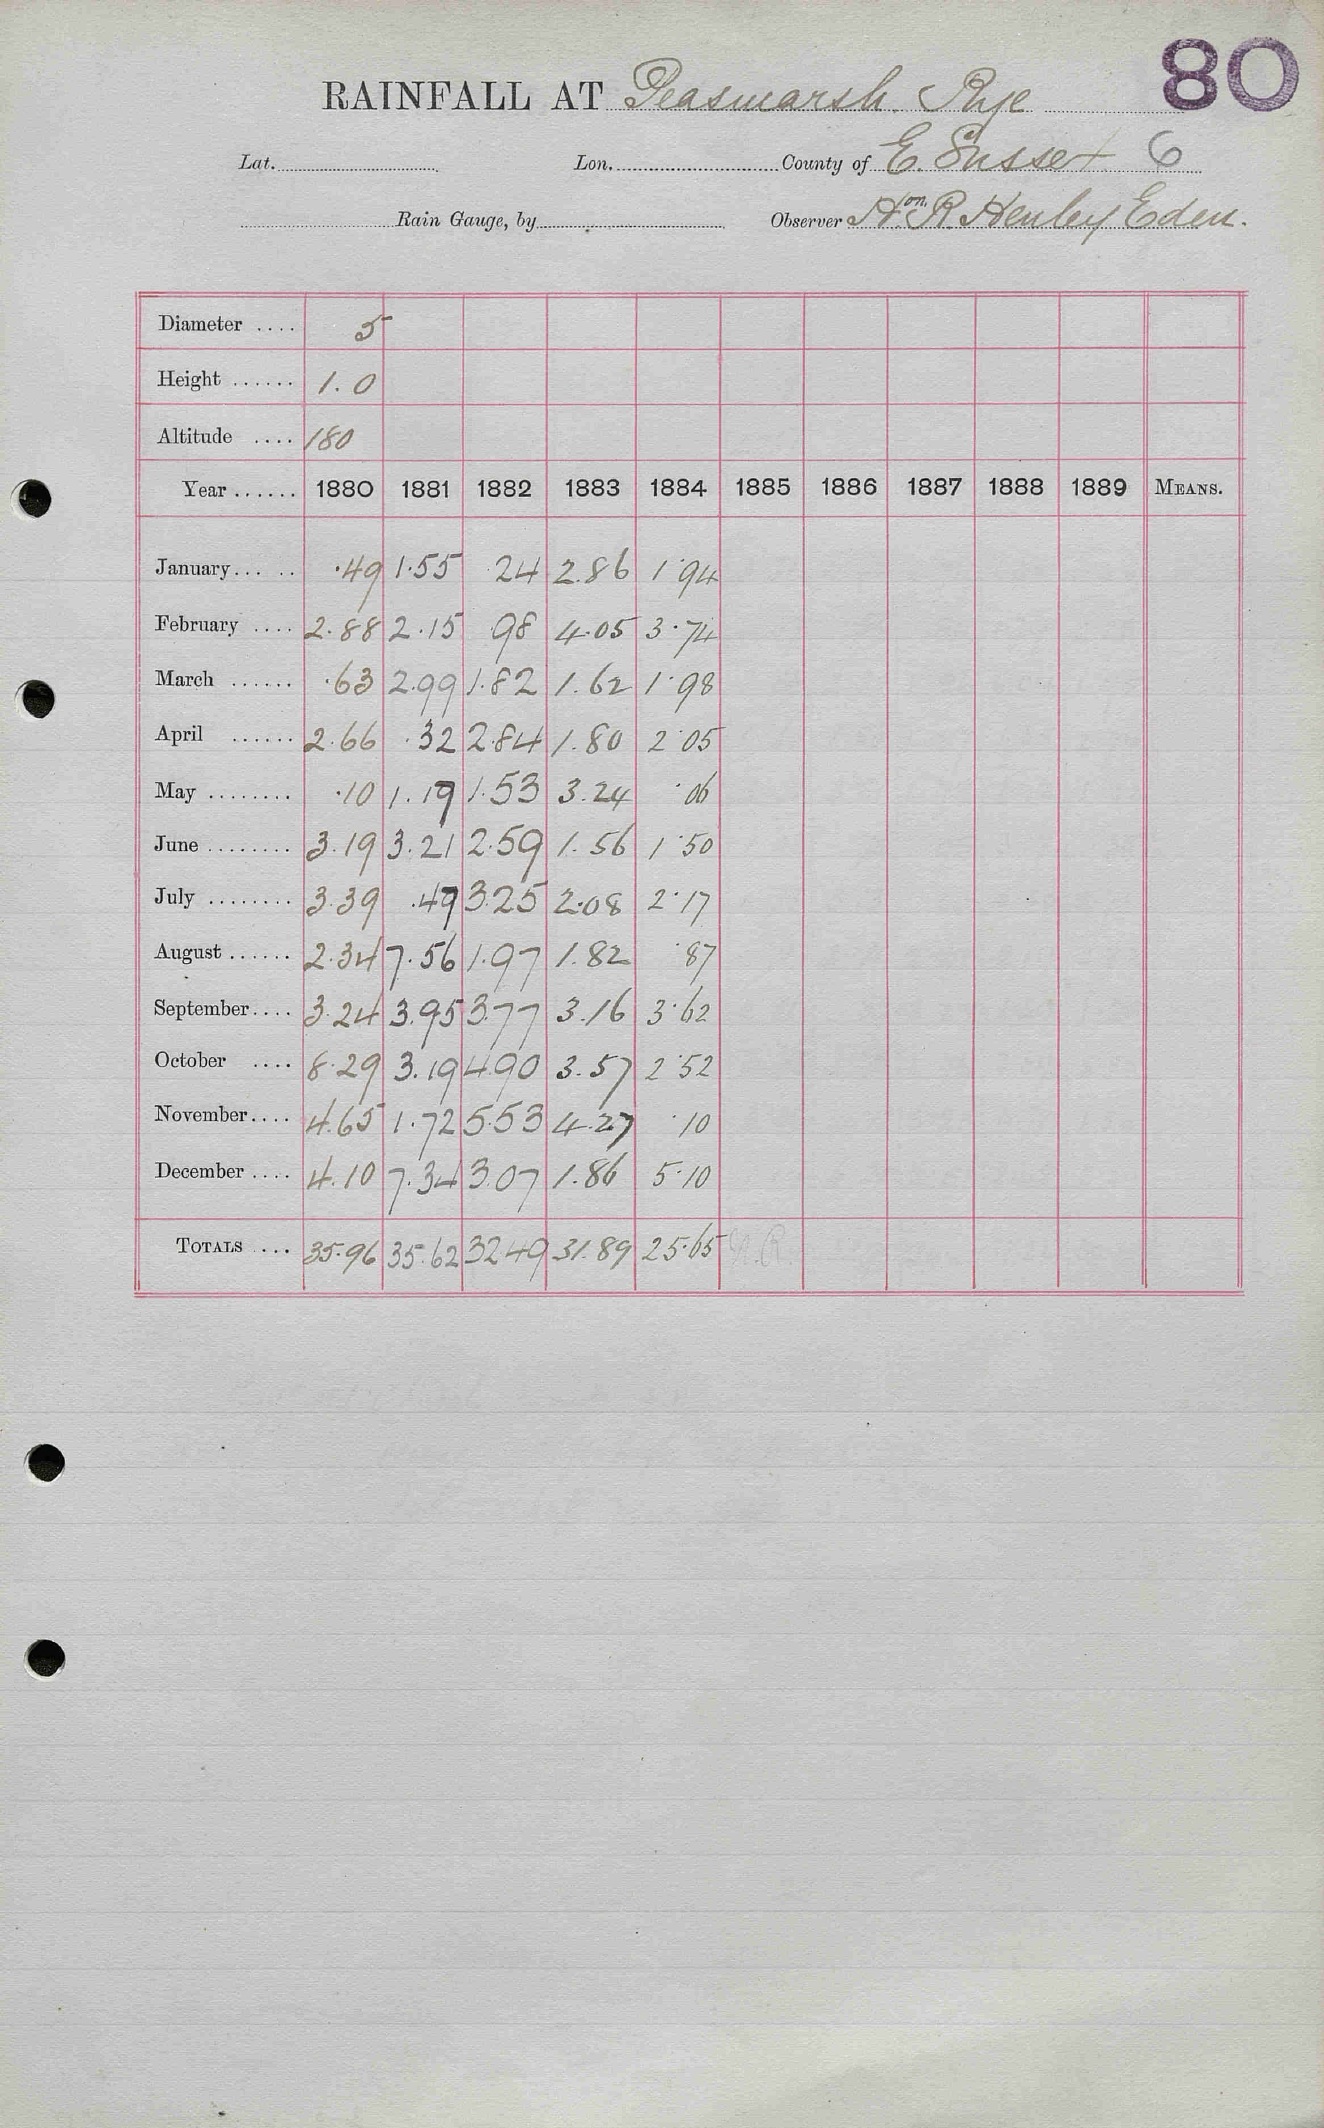 80
RAINFALL AT Peasmarsh. Rye
Lat. Lon. County of E. Sussex 6
Rain Gauge, by Observer Hon. R. Henley Eden.
Diameter .... 5
Height ...... 1.0
Altitude .... 180
Year ...... 1880 1881 1882 1883 1884 1885 1886 1887 1888 1889 MEANS.
January..... .49 1.55 .24 2.86 1.94
February .... 2.88 2.15 .98 4.05 3.74
March ...... .63 2.99 1.82 1.62 1.98
April ...... 2.66 .32 2.84 1.80 2.05
May ........ .10 1.17 1.53 3.24 .06
June ........ 3.19 3.21 2.59 1.56 1.50
July ........ 3.39 .47 3.25 2.08 2.17
August ...... 2.34 7.56 1.97 1.82 .87
September.... 3.24 3.95 3.77 3.16 3.62
October .... 8.29 3.19 4.90 3.57 2.52
November.... 4.65 1.72 5.53 4.27 .10
December .... 4.10 7.34 3.07 1.86 5.10
TOTALS .... 35.96 35.62 32.49 31.89 25.65 N.R.